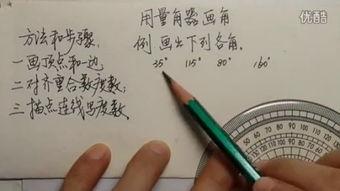 用量角器画角
方法和步骤:
例 画出下列各角。
一画顶点和一边
35° 115° 80° 160°
二对齐重合数度数;
三描点连线写度数
优酷